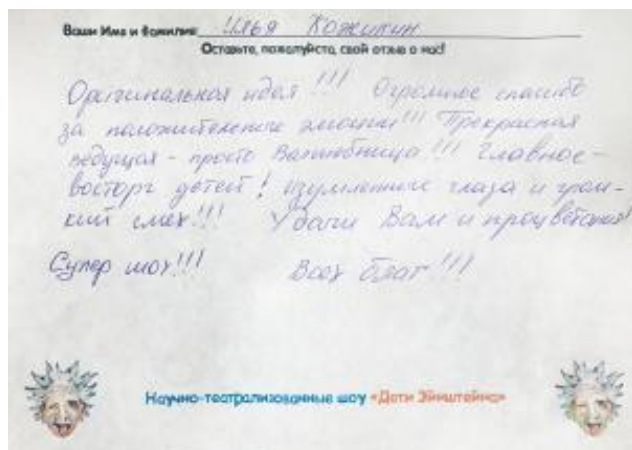 Ваши Имя и Фамилия Илья Кожикин
Оставьте, пожалуйста, свой отзыв о нас!
Оригинальная идея!!! Огромное спасибо
за положительные эмоции!!! Прекрасная
ведущая - просто Валшебница!!! Главное -
восторг детей! изумленные глаза и гром-
кий смех!!! Удачи Вам и процветания!
Супер шоу!!! Всех благ!!!
Научно-театрализованные шоу «Дети Эйнштейна»